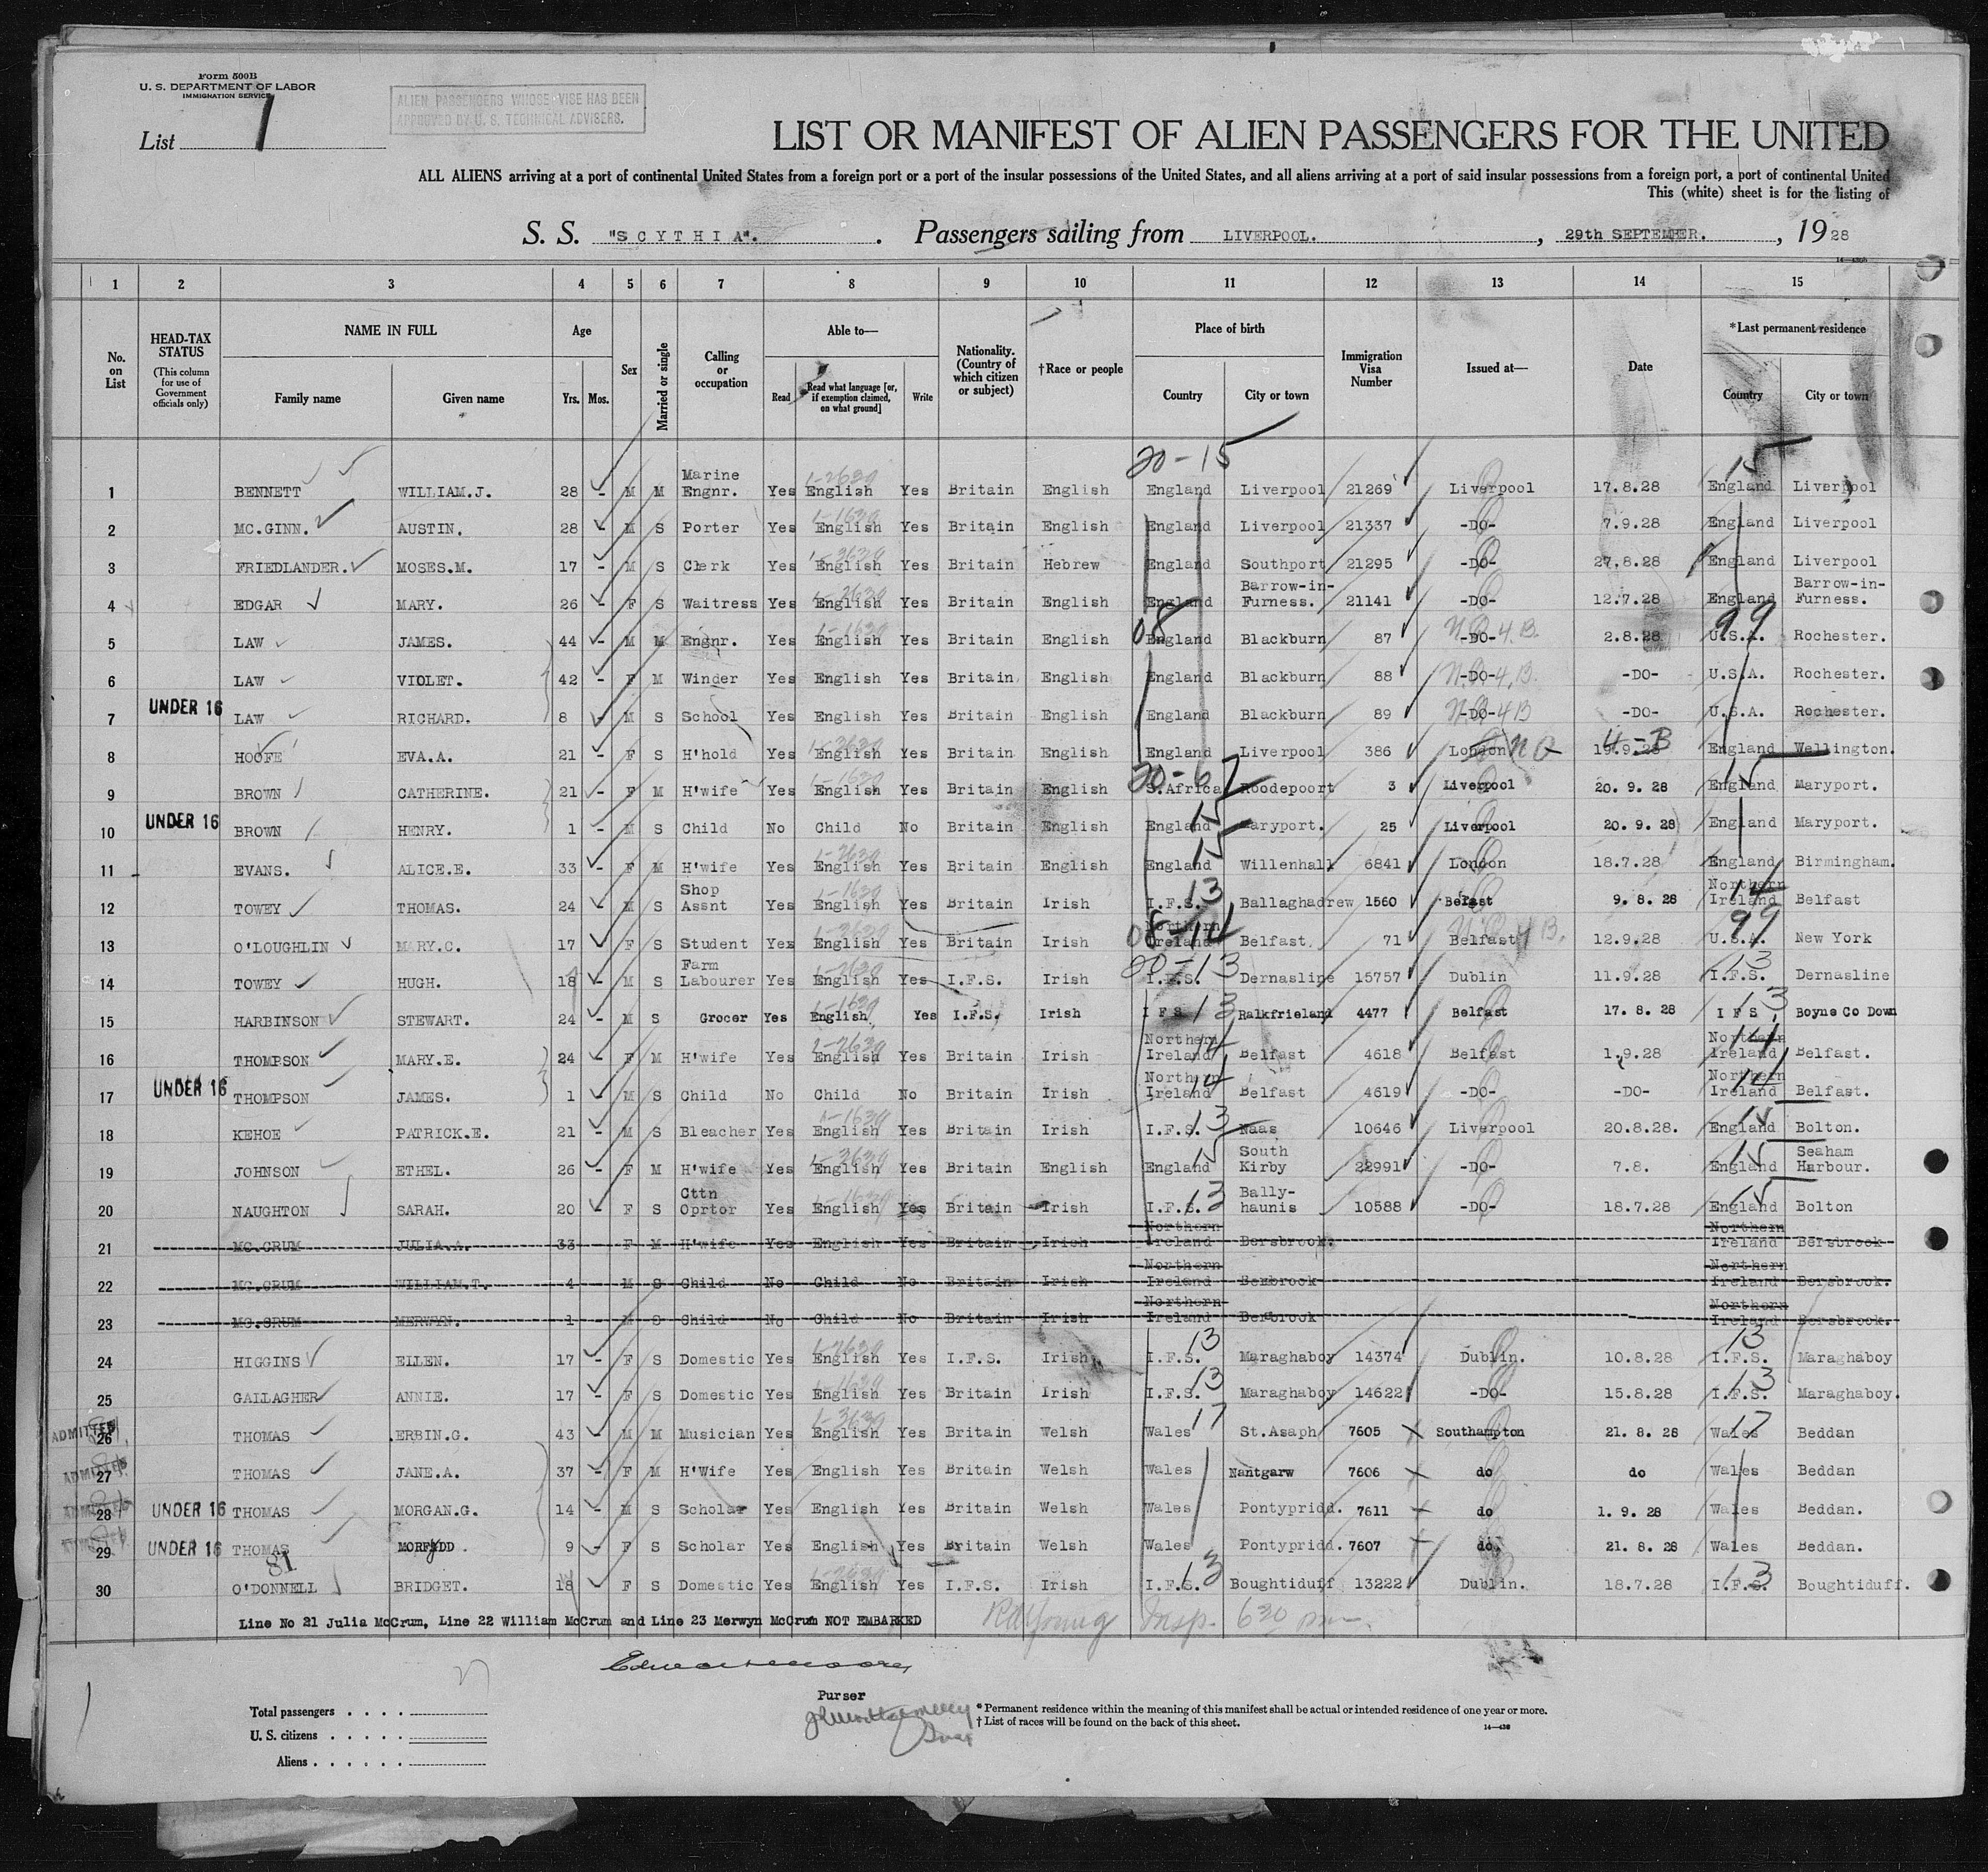 Form 500B
U. S. DEPARTMENT OF LABOR
IMMIGRATION SERVICE
ALIEN PASSENGERS WHOSE VISE HAS BEEN
APPROVED BY U. S. TECHNICAL ADVISERS.
List 1
LIST OR MANIFEST OF ALIEN PASSENGERS FOR THE UNITED
ALL ALIENS arriving at a port of continental United States from a foreign port or a port of the insular possessions of the United States, and all aliens arriving at a port of said insular possessions from a foreign port, a port of continental United
This (white) sheet is for the listing of
S. S. "SCYTHIA". Passengers sailing from LIVERPOOL. , 29th SEPTEMBER. , 1928
1 2 3 4 5 6 7 8 9 10 11 12 13 14 15
No. on List
HEAD-TAX STATUS (This column for use of Government officials only)
NAME IN FULL Family name Given name
Age Yrs. Mos.
Sex
Married or single
Calling or occupation
Able to— Read Read what language [or, if exemption claimed, on what ground] Write
Nationality. (Country of which citizen or subject)
†Race or people
Place of birth Country City or town
Immigration Visa Number
Issued at—
Date
*Last permanent residence Country City or town
20-15 15
1 BENNETT WILLIAM.J. 28 - M M Marine Engnr. Yes English Yes Britain English England Liverpool 21269 Liverpool 17.8.28 England Liverpool
2 MC.GINN. AUSTIN. 28 - M S Porter Yes English Yes Britain English England Liverpool 21337 -DO- 7.9.28 England Liverpool
3 FRIEDLANDER. MOSES.M. 17 - M S Clerk Yes English Yes Britain Hebrew England Southport 21295 -DO- 27.8.28 England Liverpool
4 EDGAR MARY. 26 - F S Waitress Yes English Yes Britain English England Barrow-in-Furness. 21141 -DO- 12.7.28 England Barrow-in-Furness.
5 LAW JAMES. 44 - M M Engnr. Yes English Yes Britain English 08 England Blackburn 87 -DO- N.Q. 4.B. 2.8.28 99 U.S.A. Rochester.
6 LAW VIOLET. 42 - F M Winder Yes English Yes Britain English England Blackburn 88 -DO- N.Q. 4.B. -DO- U.S.A. Rochester.
7 UNDER 16 LAW RICHARD. 8 - M S School Yes English Yes Britain English England Blackburn 89 -DO- N.Q. 4B -DO- U.S.A. Rochester.
8 HOOFE EVA.A. 21 - F S H'hold Yes English Yes Britain English England Liverpool 386 London NQ 4-B 19.9.28 England Wellington.
9 BROWN CATHERINE. 21 - F M H'wife Yes English Yes Britain English 20-67 S.Africa Roodepoort 3 Liverpool 20. 9. 28 15 England Maryport.
10 UNDER 16 BROWN HENRY. 1 - M S Child No Child No Britain English 15 England Maryport. 25 Liverpool 20.9.28 England Maryport.
11 EVANS. ALICE.E. 33 - F M H'wife Yes English Yes Britain English 15 England Willenhall 6841 London 18.7.28 England Birmingham.
12 TOWEY THOMAS. 24 - M S Shop Assnt Yes English Yes Britain Irish I.F.S. 13 Ballaghadrew 1560 Belfast 9. 8. 28 Northern Ireland 14 Belfast
13 O'LOUGHLIN MARY.C. 17 - F S Student Yes English Yes Britain Irish 08-14 Northern Ireland Belfast 71 Belfast N.Q. 4B. 12.9.28 99 U.S.A. New York
14 TOWEY HUGH. 18 - M S Farm Labourer Yes English Yes I.F.S. Irish 20-13 I.F.S. Dernasline 15757 Dublin 11.9.28 13 I.F.S. Dernasline
15 HARBINSON STEWART. 24 - M S Grocer Yes English Yes I.F.S. Irish I F S 13 Ralkfrieland 4477 Belfast 17. 8. 28 I F S 13 Boyne Co Down
16 THOMPSON MARY.E. 24 - F M H'wife Yes English Yes Britain Irish Northern Ireland 14 Belfast 4618 Belfast 1.9.28 Northern Ireland 14 Belfast.
17 UNDER 16 THOMPSON JAMES. 1 - M S Child No Child No Britain Irish Northern Ireland 14 Belfast 4619 -DO- -DO- Northern Ireland 14 Belfast.
18 KEHOE PATRICK.E. 21 - M S Bleacher Yes English Yes Britain Irish I.F.S. 13 Naas 10646 Liverpool 20.8.28. England 15 Bolton.
19 JOHNSON ETHEL. 26 - F M H'wife Yes English Yes Britain English England 15 South Kirby 22991 -DO- 7.8. England 15 Seaham Harbour.
20 NAUGHTON SARAH. 20 - F S Cttn Oprtor Yes English Yes Britain Irish I.F.S. 13 Bally-haunis 10588 -DO- 18.7.28 England 15 Bolton
21 MC.CRUM JULIA.A. 33 F M H'wife Yes English Yes Britain Irish Northern Ireland Bersbrook. Northern Ireland Bersbrook
22 MC.CRUM WILLIAM.T. 4 M S Child No Child No Britain Irish Northern Ireland Bersbrook Northern Ireland Bersbrook.
23 MC.CRUM MERWYN. 1 M S Child No Child No Britain Irish Northern Ireland Bersbrook Northern Ireland Bersbrook.
24 HIGGINS ELLEN. 17 - F S Domestic Yes English Yes I.F.S. Irish I.F.S. 13 Maraghaboy 14374 Dublin. 10.8.28 13 I.F.S. Maraghaboy
25 GALLAGHER ANNIE. 17 - F S Domestic Yes English Yes Britain Irish I.F.S. 13 Maraghaboy 14622 -DO- 15.8.28 13 I.F.S. Maraghaboy.
ADMITTED 26 THOMAS ERBIN.G. 43 M M Musician Yes English Yes Britain Welsh Wales 17 St.Asaph 7605 Southampton 21. 8. 28 Wales 17 Beddan
ADMITTED 27 THOMAS JANE.A. 37 - F M H'Wife Yes English Yes Britain Welsh Wales Nantgarw 7606 do do Wales Beddan
ADMITTED 28 UNDER 16 THOMAS MORGAN.G. 14 - M S Scholar Yes English Yes Britain Welsh Wales Pontypridd. 7611 do 1. 9. 28 Wales Beddan.
ADMITTED 29 UNDER 16 THOMAS MORFYDD. 9 - F S Scholar Yes English Yes Britain Welsh Wales Pontypridd. 7607 do. 21. 8. 28 Wales Beddan.
81
30 O'DONNELL BRIDGET. 18 F S Domestic Yes English Yes I.F.S. Irish I.F.S. 13 Boughtiduff 13222 Dublin. 18.7.28 I.F.S. 13 Boughtiduff.
Line No 21 Julia McCrum, Line 22 William McCrum and Line 23 Merwyn McCrum NOT EMBARKED
Young Insp. 630 pm
Purser
Total passengers
U. S. citizens
Aliens
27
*Permanent residence within the meaning of this manifest shall be actual or intended residence of one year or more.
†List of races will be found on the back of this sheet.